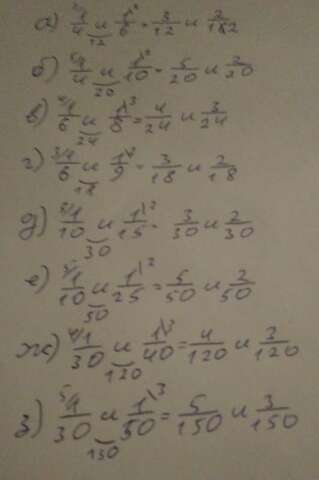 а) 3/1/4 и 1\2/6 = 3/12 и 2/12
12
б) 5/1/4 и 1\2/10 = 5/20 и 2/20
20
в) 4/1/6 и 1\3/8 = 4/24 и 3/24
24
г) 3/1/6 и 1\2/9 = 3/18 и 2/18
18
д) 3/1/10 и 1\2/15 = 3/30 и 2/30
30
е) 5/1/10 и 1\2/25 = 5/50 и 2/50
50
ж) 4/1/30 и 1\3/40 = 4/120 и 3/120
120
з) 5/1/30 и 1\3/50 = 5/150 и 3/150
150